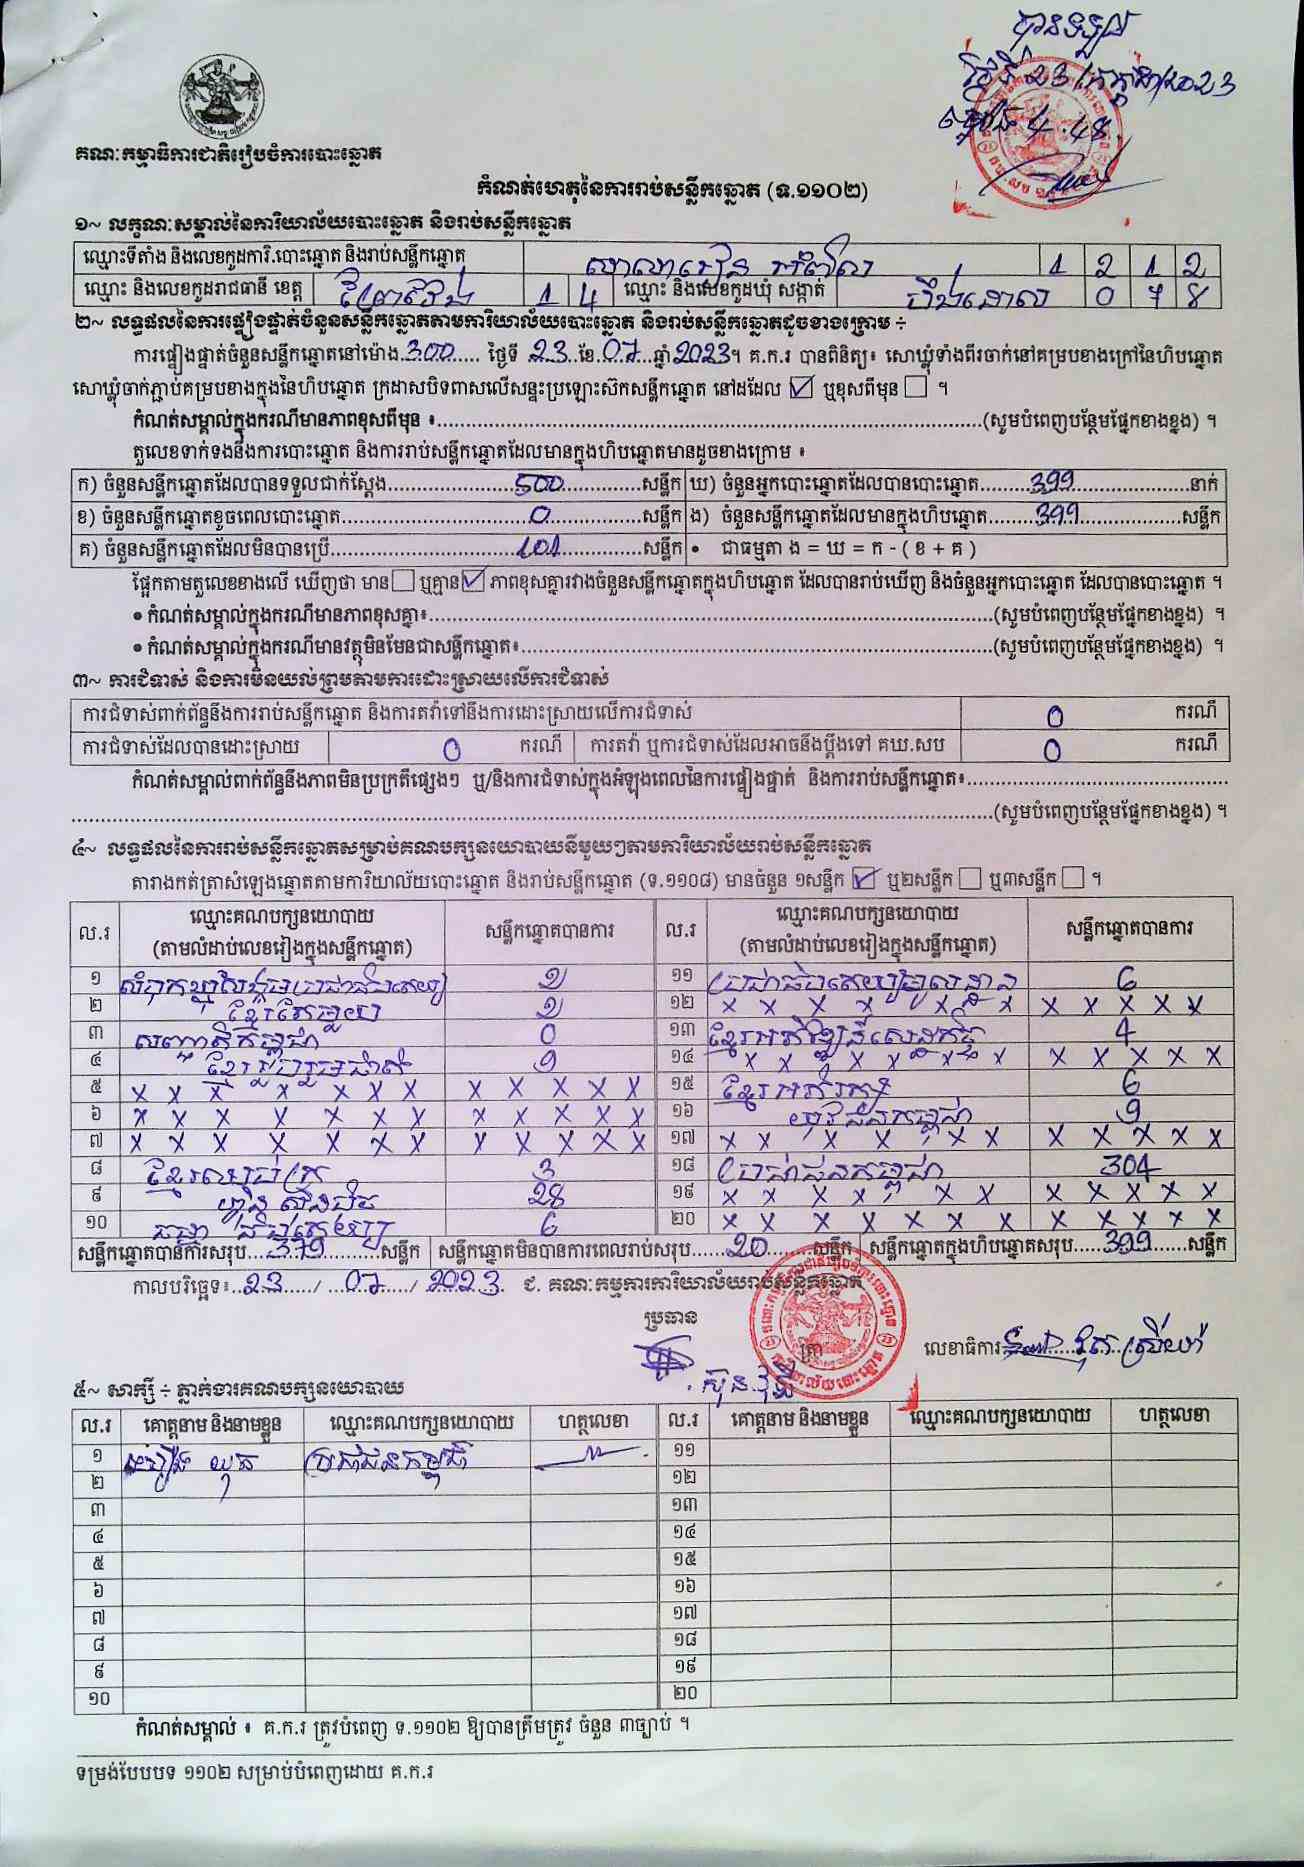 បានទទួល
ថ្ងៃទី 23/កក្កដា/2023
ម៉ោង 4:48
គណៈកម្មាធិការជាតិរៀបចំការបោះឆ្នោត
កំណត់ហេតុនៃការរាប់សន្លឹកឆ្នោត (ទ.១១០២)
១~ លក្ខណៈសម្គាល់នៃការិយាល័យបោះឆ្នោត និងរាប់សន្លឹកឆ្នោត
ឈ្មោះទីតាំង និងលេខកូដការិ.បោះឆ្នោត និងរាប់សន្លឹកឆ្នោត សាលារៀន 1 2 1 2
ឈ្មោះ និងលេខកូដរាជធានី ខេត្ត ព្រៃវែង 1 4 ឈ្មោះ និងលេខកូដឃុំ សង្កាត់ បឹងដោល 0 7 8
២~ លទ្ធផលនៃការផ្ទៀងផ្ទាត់ចំនួនសន្លឹកឆ្នោតតាមការិយាល័យបោះឆ្នោត និងរាប់សន្លឹកឆ្នោតដូចខាងក្រោម ÷
ការផ្ទៀងផ្ទាត់ចំនួនសន្លឹកឆ្នោតនៅម៉ោង 300 ថ្ងៃទី 23 ខែ 07 ឆ្នាំ 2023។ គ.ក.រ បានពិនិត្យ៖ សោឃ្លុំទាំងពីរចាក់នៅគម្របខាងក្រៅនៃហិបឆ្នោត
សោឃ្លុំចាក់ភ្ជាប់គម្របខាងក្នុងនៃហិបឆ្នោត ក្រដាសបិទពាសលើសន្ទះប្រឡោះស៊កសន្លឹកឆ្នោត នៅដដែល ☑ ឬខុសពីមុន ☐ ។
កំណត់សម្គាល់ក្នុងករណីមានភាពខុសពីមុន ៖..........(សូមបំពេញបន្ថែមផ្នែកខាងខ្នង) ។
តួលេខទាក់ទងនឹងការបោះឆ្នោត និងការរាប់សន្លឹកឆ្នោតដែលមានក្នុងហិបឆ្នោតមានដូចខាងក្រោម ៖
ក) ចំនួនសន្លឹកឆ្នោតដែលបានទទួលជាក់ស្តែង 500 សន្លឹក ឃ) ចំនួនអ្នកបោះឆ្នោតដែលបានបោះឆ្នោត 399 នាក់
ខ) ចំនួនសន្លឹកឆ្នោតខូចពេលបោះឆ្នោត 0 សន្លឹក ង) ចំនួនសន្លឹកឆ្នោតដែលមានក្នុងហិបឆ្នោត 399 សន្លឹក
គ) ចំនួនសន្លឹកឆ្នោតដែលមិនបានប្រើ 101 សន្លឹក • ជាធម្មតា ង = ឃ = ក - ( ខ + គ )
ផ្អែកតាមតួលេខខាងលើ ឃើញថា មាន ☐ ឬគ្មាន ☑ ភាពខុសគ្នារវាងចំនួនសន្លឹកឆ្នោតក្នុងហិបឆ្នោត ដែលបានរាប់ឃើញ និងចំនួនអ្នកបោះឆ្នោត ដែលបានបោះឆ្នោត ។
• កំណត់សម្គាល់ក្នុងករណីមានភាពខុសគ្នា៖..........(សូមបំពេញបន្ថែមផ្នែកខាងខ្នង) ។
• កំណត់សម្គាល់ក្នុងករណីមានវត្ថុមិនមែនជាសន្លឹកឆ្នោត៖..........(សូមបំពេញបន្ថែមផ្នែកខាងខ្នង) ។
៣~ ការជំទាស់ និងការមិនយល់ព្រមតាមការដោះស្រាយលើការជំទាស់
ការជំទាស់ពាក់ព័ន្ធនឹងការរាប់សន្លឹកឆ្នោត និងការតវ៉ាទៅនឹងការដោះស្រាយលើការជំទាស់ 0 ករណី
ការជំទាស់ដែលបានដោះស្រាយ 0 ករណី ការតវ៉ា ឬការជំទាស់ដែលអាចនឹងប្តឹងទៅ គឃ.សប 0 ករណី
កំណត់សម្គាល់ពាក់ព័ន្ធនឹងភាពមិនប្រក្រតីផ្សេងៗ ឬ/និងការជំទាស់ក្នុងអំឡុងពេលនៃការផ្ទៀងផ្ទាត់ និងការរាប់សន្លឹកឆ្នោត៖..........
..........(សូមបំពេញបន្ថែមផ្នែកខាងខ្នង) ។
៤~ លទ្ធផលនៃការរាប់សន្លឹកឆ្នោតសម្រាប់គណបក្សនយោបាយនីមួយៗតាមការិយាល័យរាប់សន្លឹកឆ្នោត
តារាងកត់ត្រាសំឡេងឆ្នោតតាមការិយាល័យបោះឆ្នោត និងរាប់សន្លឹកឆ្នោត (ទ.១១០៨) មានចំនួន ១សន្លឹក ☑ ឬ២សន្លឹក ☐ ឬ៣សន្លឹក ☐ ។
ល.រ ឈ្មោះគណបក្សនយោបាយ (តាមលំដាប់លេខរៀងក្នុងសន្លឹកឆ្នោត) សន្លឹកឆ្នោតបានការ ល.រ ឈ្មោះគណបក្សនយោបាយ (តាមលំដាប់លេខរៀងក្នុងសន្លឹកឆ្នោត) សន្លឹកឆ្នោតបានការ
១ ១១ ប្រជាធិបតេយ្យមូលដ្ឋាន 6
២ ខ្មែរតែមួយ ១២ X X X X X X X X X X X X
៣ សញ្ជាតិកម្ពុជា 0 ១៣ ខ្មែរអភិវឌ្ឍន៍សេដ្ឋកិច្ច 4
៤ ខ្មែររួបរួមជាតិ ១៤ X X X X X X X X X X X X
៥ X X X X X X X X X X X X ១៥ ខ្មែរអភិរក្ស 6
៦ X X X X X X X X X X X X ១៦ យុវជនកម្ពុជា 9
៧ X X X X X X X X X X X X ១៧ X X X X X X X X X X X X
៨ ខ្មែរឈប់ក្រ 3 ១៨ ប្រជាជនកម្ពុជា 304
៩ ហ្វ៊ុនស៊ិនប៉ិច 28 ១៩ X X X X X X X X X X X
១០ ធម្មាធិបតេយ្យ 6 ២០ X X X X X X X X X X X X
សន្លឹកឆ្នោតបានការសរុប 379 សន្លឹក សន្លឹកឆ្នោតមិនបានការពេលរាប់សរុប 20 សន្លឹក សន្លឹកឆ្នោតក្នុងហិបឆ្នោតសរុប 399 សន្លឹក
កាលបរិច្ឆេទ៖ 23 / 07 / 2023 ជ. គណៈកម្មការការិយាល័យរាប់សន្លឹកឆ្នោត
ប្រធាន
ត្រា លេខាធិការ
៥~ សាក្សី ÷ ភ្នាក់ងារគណបក្សនយោបាយ
ល.រ គោត្តនាម និងនាមខ្លួន ឈ្មោះគណបក្សនយោបាយ ហត្ថលេខា ល.រ គោត្តនាម និងនាមខ្លួន ឈ្មោះគណបក្សនយោបាយ ហត្ថលេខា
១ ប្រជាជនកម្ពុជា ១១
២ ១២
៣ ១៣
៤ ១៤
៥ ១៥
៦ ១៦
៧ ១៧
៨ ១៨
៩ ១៩
១០ ២០
កំណត់សម្គាល់ ៖ គ.ក.រ ត្រូវបំពេញ ទ.១១០២ ឱ្យបានត្រឹមត្រូវ ចំនួន ៣ច្បាប់ ។
ទម្រង់បែបបទ ១១០២ សម្រាប់បំពេញដោយ គ.ក.រ